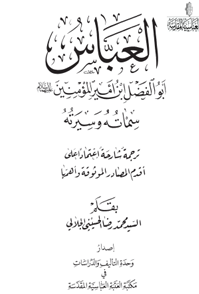 العَبّاسُ
أبو الفَضْلِ ابْنُ أَمِيرِ المُؤْمِنِينَ
سِمَاتُهُ وَسِيرَتُهُ
ترجمة شارحة اعتماداً على
أقدم المصادر الموثوقة وأهمّها
بقلم
السيد محمد رضا الحسيني الجلالي
إصدار
وحدة التأليف والدراسات
في
مكتبة العتبة العباسية المقدسة